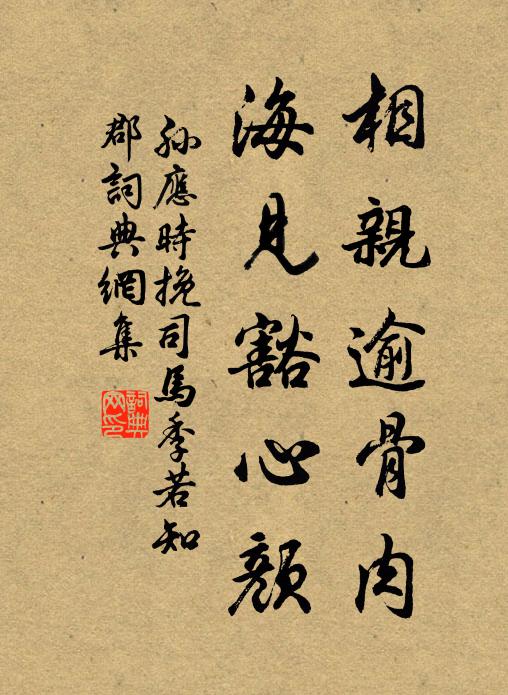 相親逾骨肉
海見豁心顏
孫應時挽司馬季若知
郡詞典網集
詞典网印